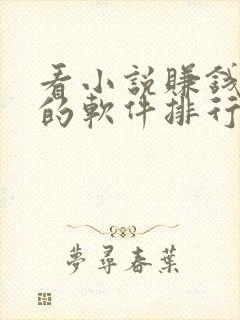 看小說賺錢
的軟件排行
夢尋春葉